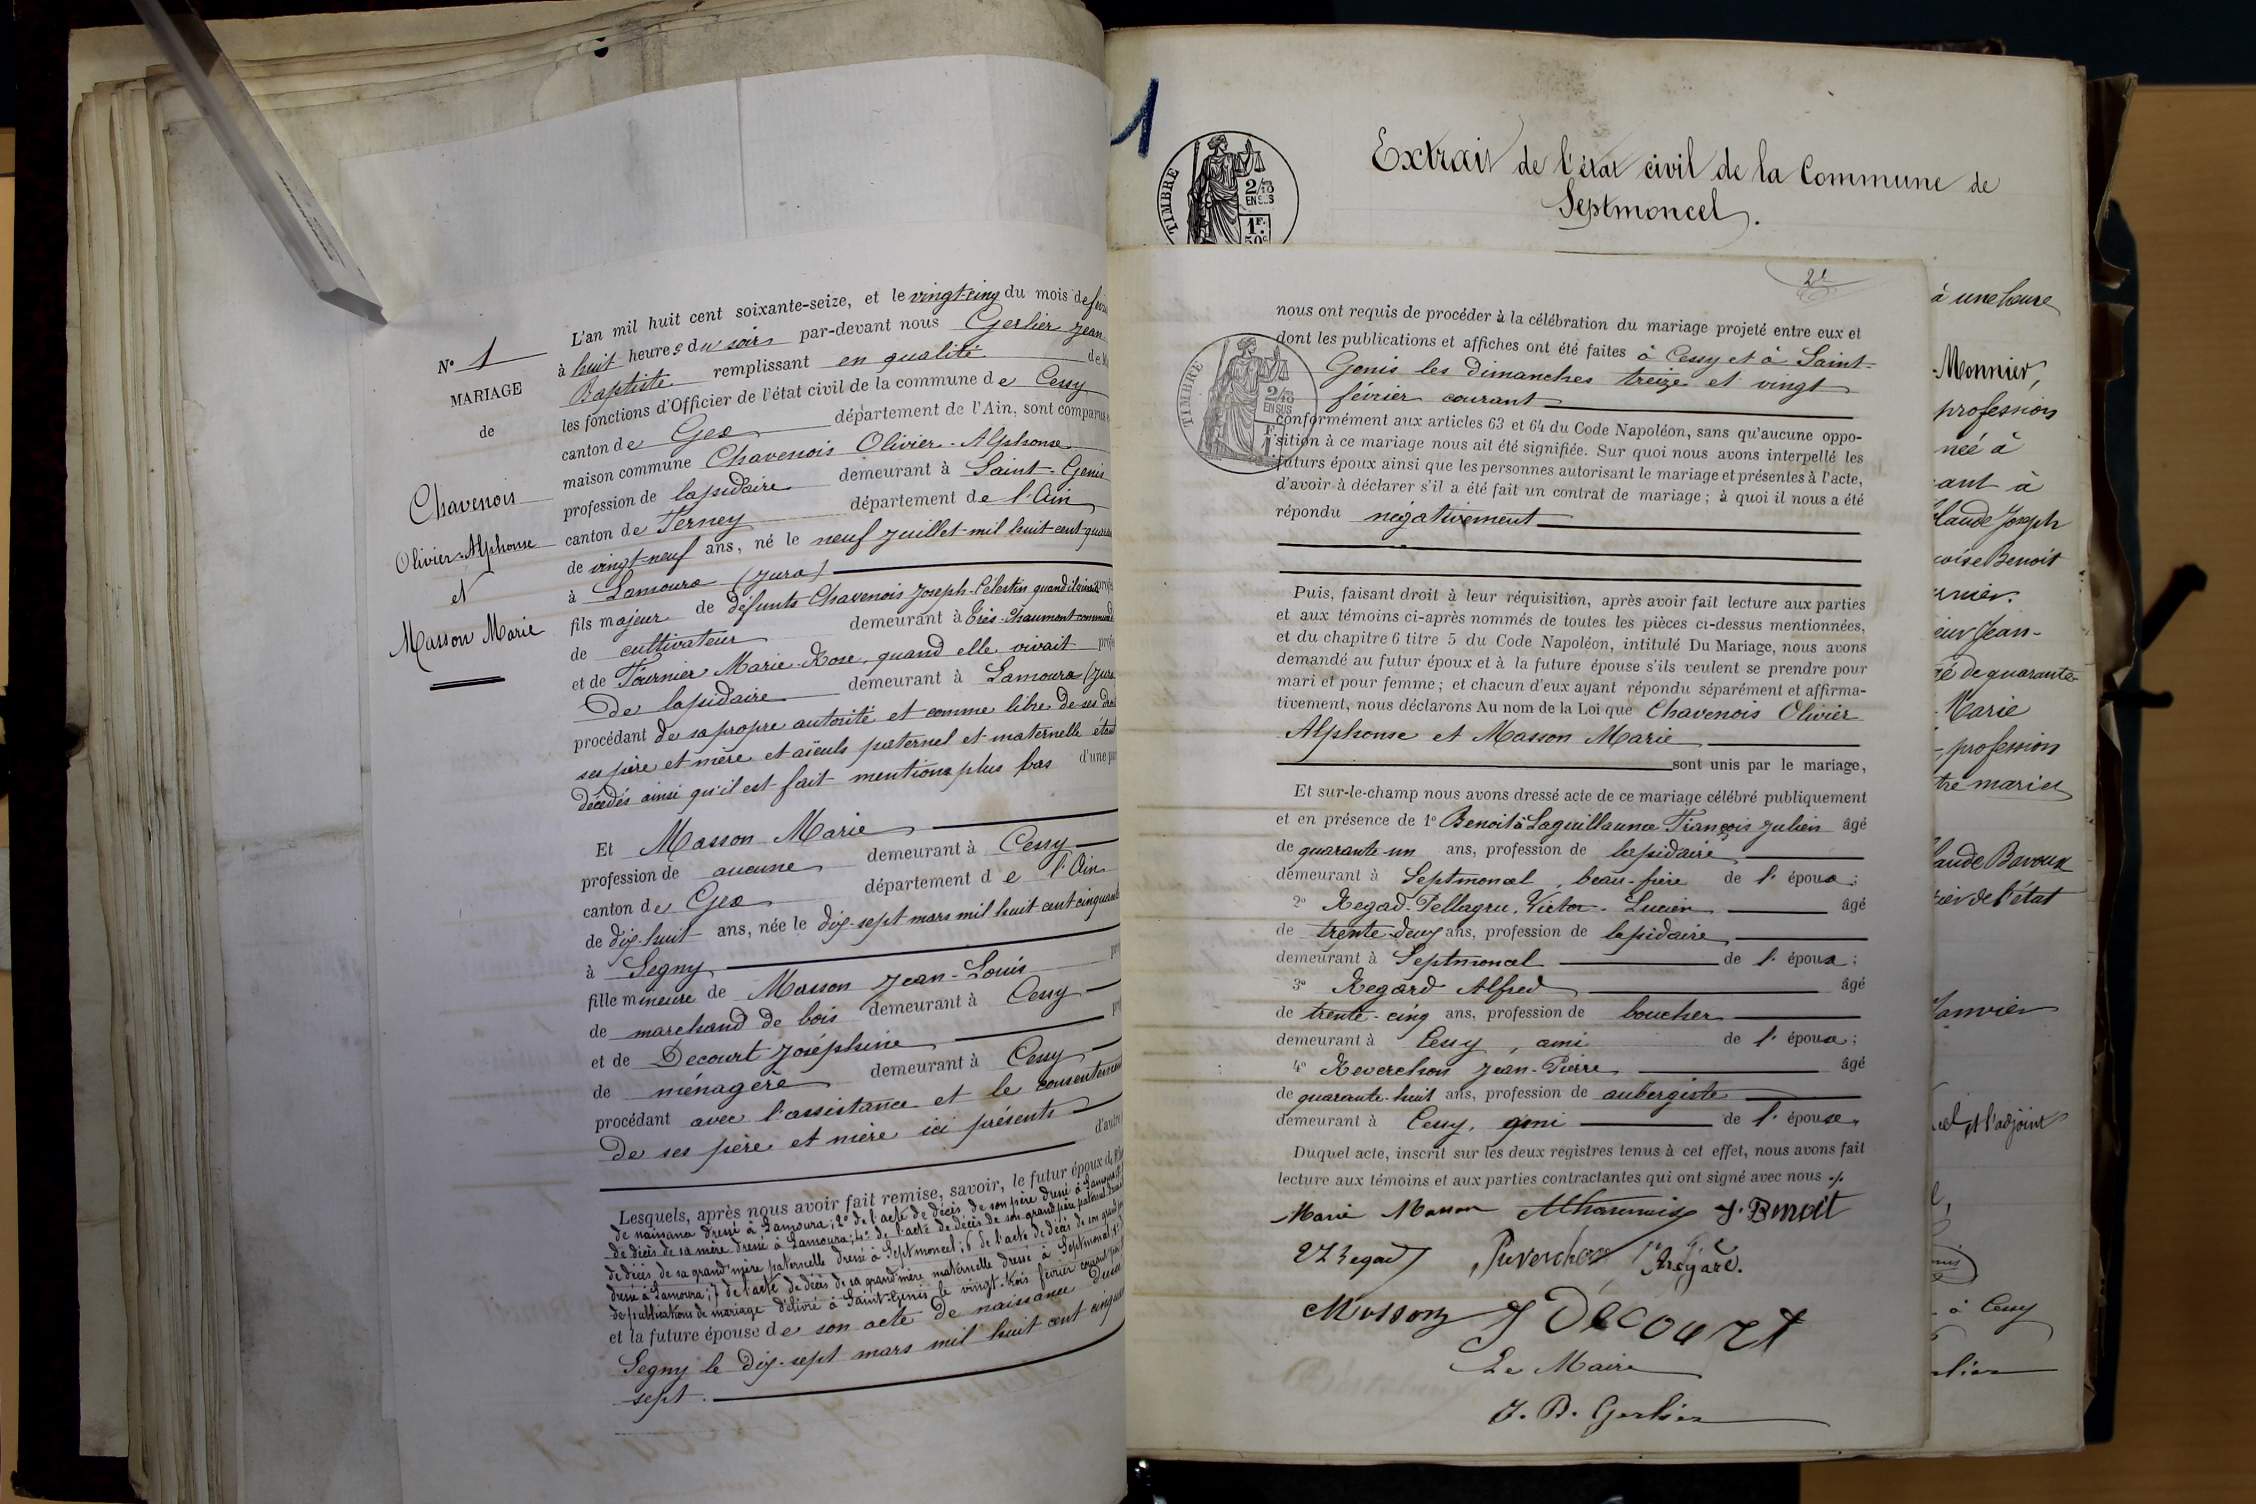 N° 1
MARIAGE
de
Chavenois
Olivier-Alphonse
et
Masson Marie
L'an mil huit cent soixante-seize, et le vingt-cinq du mois de
à huit heures du soir par-devant nous Gerlier Jean
Baptiste remplissant en qualité de
les fonctions d'Officier de l'état civil de la commune de Cessy
canton de Gex département de l'Ain, sont comparus
maison commune Chavenois Olivier-Alphonse
profession de lapidaire demeurant à Saint-Genis
canton de Ferney département de l'Ain
de vingt-neuf ans, né le neuf Juillet mil huit cent
à Lamoura (Jura)
fils majeur de défunts Chavenois Joseph-Célestin quand il vivait
de cultivateur demeurant à Très-Chaumont
et de Fournier Marie-Rose, quand elle vivait
De lapidaire demeurant à Lamoura (Jura
procédant de sa propre autorité et comme libre de ses
ses père et mère et aïeuls paternel et maternelle étant
décédés ainsi qu'il est fait mentions plus bas d'une
Et Masson Marie
profession de aucune demeurant à Cessy
canton de Gex département de l'Ain
de dix-huit ans, née le dix-sept mars mil huit cent
à Segny
fille mineure de Masson Jean-Louis
de marchand de bois demeurant à Cessy
et de Decourt Joséphine
de ménagère demeurant à Cessy
procédant avec l'assistance et le
De ses père et mère ici présents
Lesquels, après nous avoir fait remise, savoir, le futur époux
de naissance dressé à Lamoura; 2° de l'acte de décès de son père dressé à
de décès de sa mère dressé à Lamoura; 4° de l'acte de décès de son grand père paternel
de décès de sa grand'mère paternelle dressé à Septmoncel; 6 de l'acte de décès de son
dressé à Lamoura; 7 de l'acte de décès de sa grand'mère maternelle dressé à Septmoncel
de publications de mariage délivré à Saint-Genis le vingt-trois février courant
et la future épouse de son acte de naissance
Segny le dix-sept mars mil huit cent
sept.
1
TIMBRE
2/10
EN SUS
1F.
50c
Extrait de l'état civil de la Commune de
Septmoncel.
TIMBRE
2/10
EN SUS
nous ont requis de procéder à la célébration du mariage projeté entre eux et
dont les publications et affiches ont été faites à Cessy et à Saint-
Genis les dimanches treize et vingt
février courant
conformément aux articles 63 et 64 du Code Napoléon, sans qu'aucune oppo-
sition à ce mariage nous ait été signifiée. Sur quoi nous avons interpellé les
futurs époux ainsi que les personnes autorisant le mariage et présentes à l'acte,
d'avoir à déclarer s'il a été fait un contrat de mariage; à quoi il nous a été
répondu négativement
Puis, faisant droit à leur réquisition, après avoir fait lecture aux parties
et aux témoins ci-après nommés de toutes les pièces ci-dessus mentionnées,
et du chapitre 6 titre 5 du Code Napoléon, intitulé Du Mariage, nous avons
demandé au futur époux et à la future épouse s'ils veulent se prendre pour
mari et pour femme; et chacun d'eux ayant répondu séparément et affirma-
tivement, nous déclarons Au nom de la Loi que Chavenois Olivier
Alphonse et Masson Marie
sont unis par le mariage,
Et sur-le-champ nous avons dressé acte de ce mariage célébré publiquement
et en présence de 1° Benoit à Laguillaume François Julien âgé
de quarante-un ans, profession de lapidaire
demeurant à Septmoncel, beau-frère de l'époux;
2° Regad-Pellagru, Victor-Lucien âgé
de trente-deux ans, profession de lapidaire
demeurant à Septmoncel de l'époux;
3° Regard Alfred âgé
de trente-cinq ans, profession de boucher
demeurant à Cessy, ami de l'époux;
4° Reverchon Jean-Pierre âgé
de quarante-huit ans, profession de aubergiste
demeurant à Cessy, ami de l'épouse.
Duquel acte, inscrit sur les deux registres tenus à cet effet, nous avons fait
lecture aux témoins et aux parties contractantes qui ont signé avec nous
Marie Masson J. Benoit
Regad Reverchon Regard.
Masson J Décourt
Le Maire
J. B. Gerlier
à une heure
Monnier,
profession
née à
ant à
Claude Joseph
Benoit
Jean-
de quarante-
Marie
profession
Bavoux
de l'état
Janvier
et l'adjoint
à Cessy